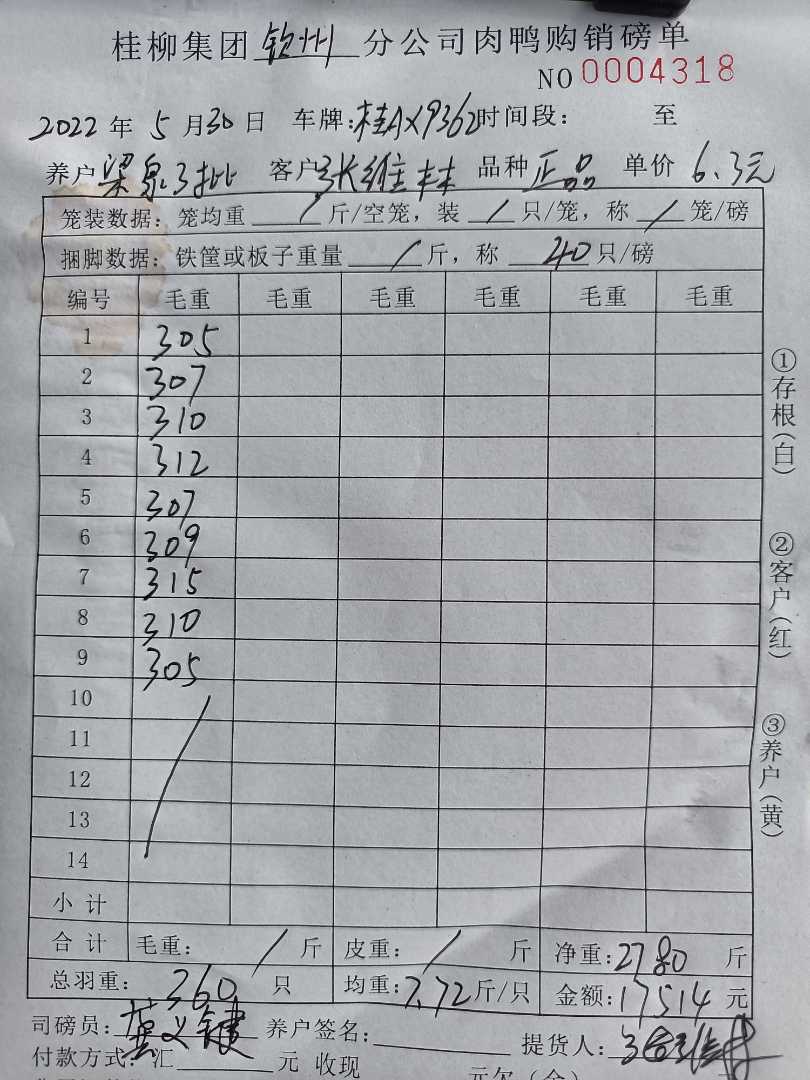 桂柳集团 钦州 分公司肉鸭购销磅单
NO 0004318
2022 年 5 月 30 日 车牌:桂AX9362 时间段: 至
养户 梁泉3批 客户 张维林 品种 正品 单价 6.3元
笼装数据: 笼均重 / 斤/空笼, 装 / 只/笼, 称 / 笼/磅
捆脚数据: 铁筐或板子重量 / 斤, 称 40 只/磅
编号 毛重 毛重 毛重 毛重 毛重 毛重
1 305
2 307
3 310
4 312
5 307
6 309
7 315
8 310
9 305
10
11
12
13
14
小计
合计 毛重: / 斤 皮重: / 斤 净重:2780 斤
总羽重: 360 只 均重:7.72 斤/只 金额:17514 元
司磅员: 养户签名: 提货人:
付款方式:汇 元 收现
元欠(余)
①存根(白)
②客户(红)
③养户(黄)